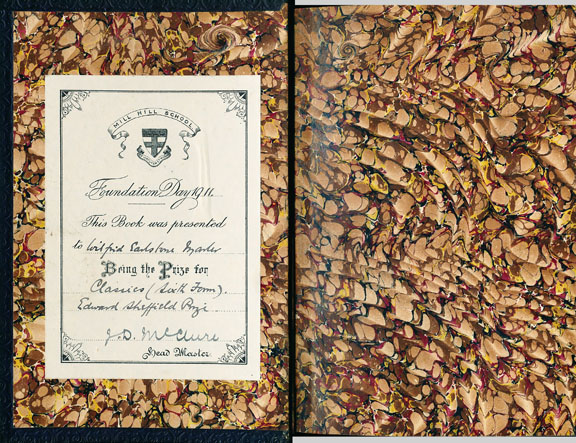 MILL HILL SCHOOL
Foundation Day 1911.
This Book was presented
to Wilfrid
Being the Prize for
Classics (Sixth Form).
Edward Sheffield Prize
J. D. McClure
Head Master.